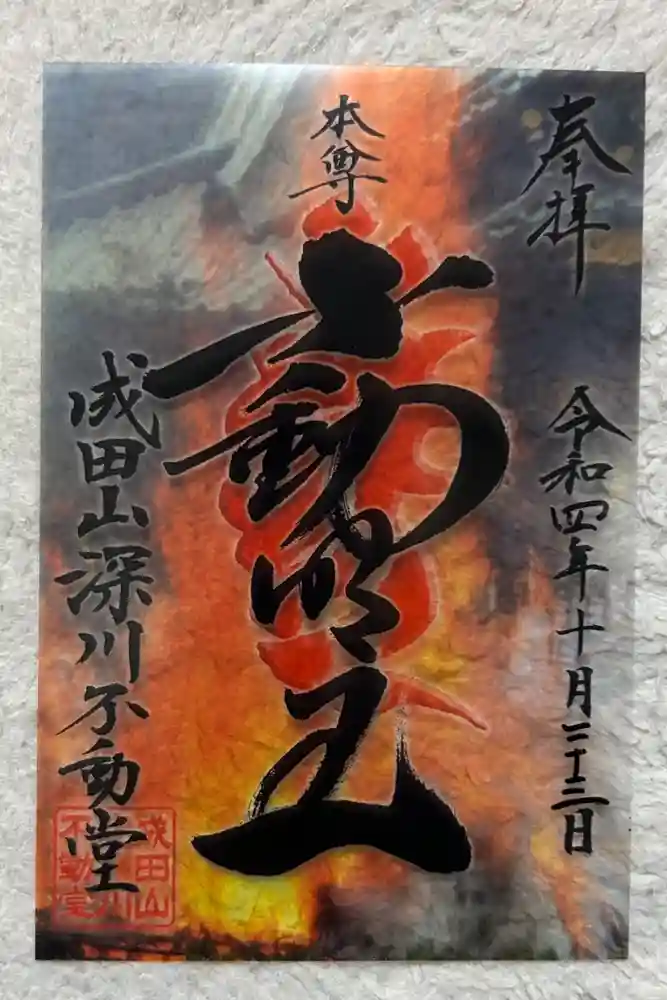 奉拝
令和四年十月二十三日
本尊
不動明王
成田山深川不動堂
成田山
不動堂